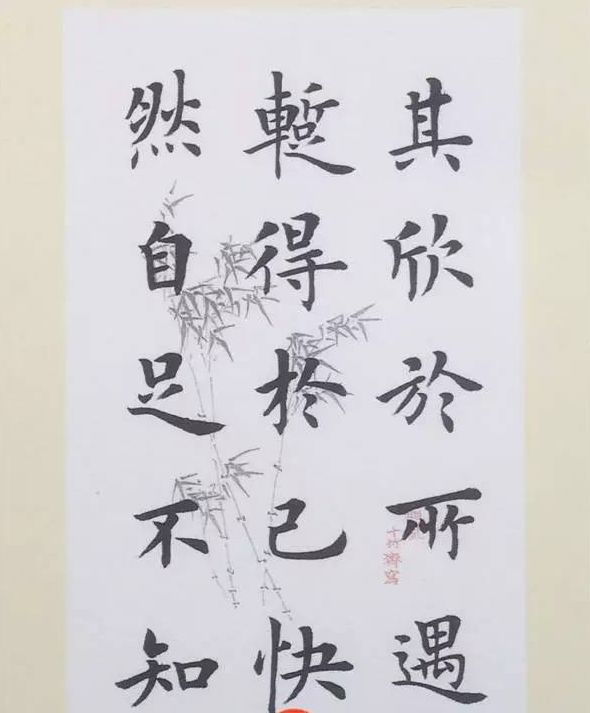 其欣於所遇
蹔得於己快
然自足不知